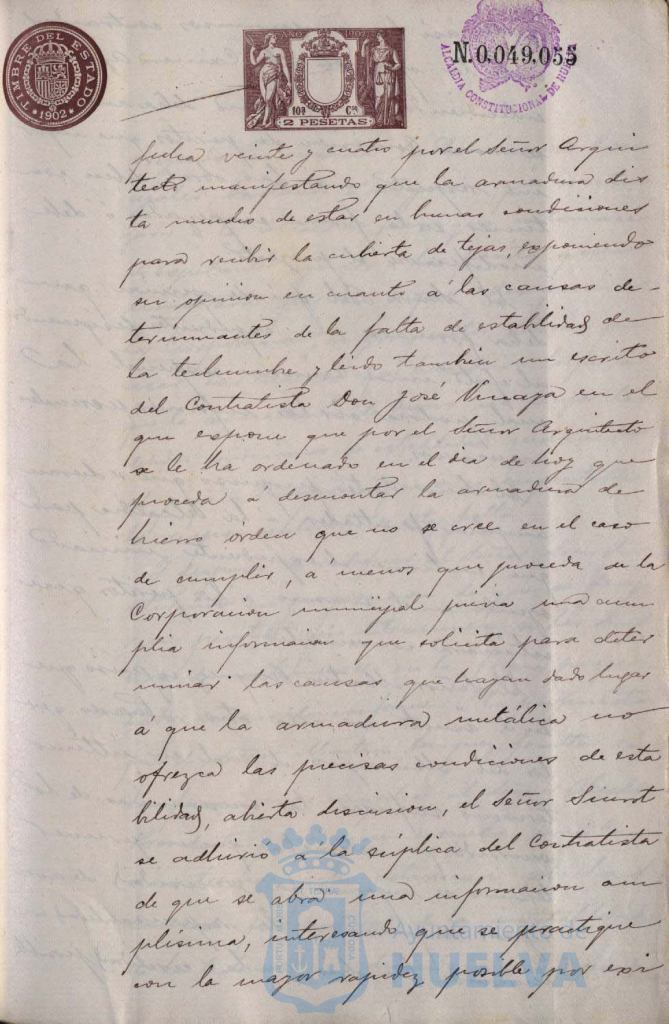 TIMBRE DEL ESTADO
*1902*
AÑO 1902
10ª Cª
2 PESETAS
N.0.049.055
ALCALDIA CONSTITUCIONAL DE HUE
fecha veinte y cuatro por el Señor Arqui
tecto manifestando que la armadura dis
ta mucho de estar en buenas condiciones
para recibir la cubierta de tejas, exponiendo
su opinion en cuanto á las causas de-
terminantes de la falta de estabilidad de
la techumbre y leido tambien un escrito
del Contratista Don José en el
que expone que por el Señor Arquitecto
se le ha ordenado en el dia de hoy que
proceda á desmontar la armadura de
hierro órden que no se cree en el caso
de cumplir, á menos que proceda de la
Corporacion municipal prévia una am
plia informacion que solicita para deter
minar las causas que hayan dado lugar
á que la armadura metálica no
ofrezca las precisas condiciones de esta
bilidad, abierta discusion, el Señor
se adhirió á la súplica del Contratista
de que se abra una informacion am
plísima, interesando que se practique
con la mayor rapidez posible por exi
Ayuntamiento de
HUELVA